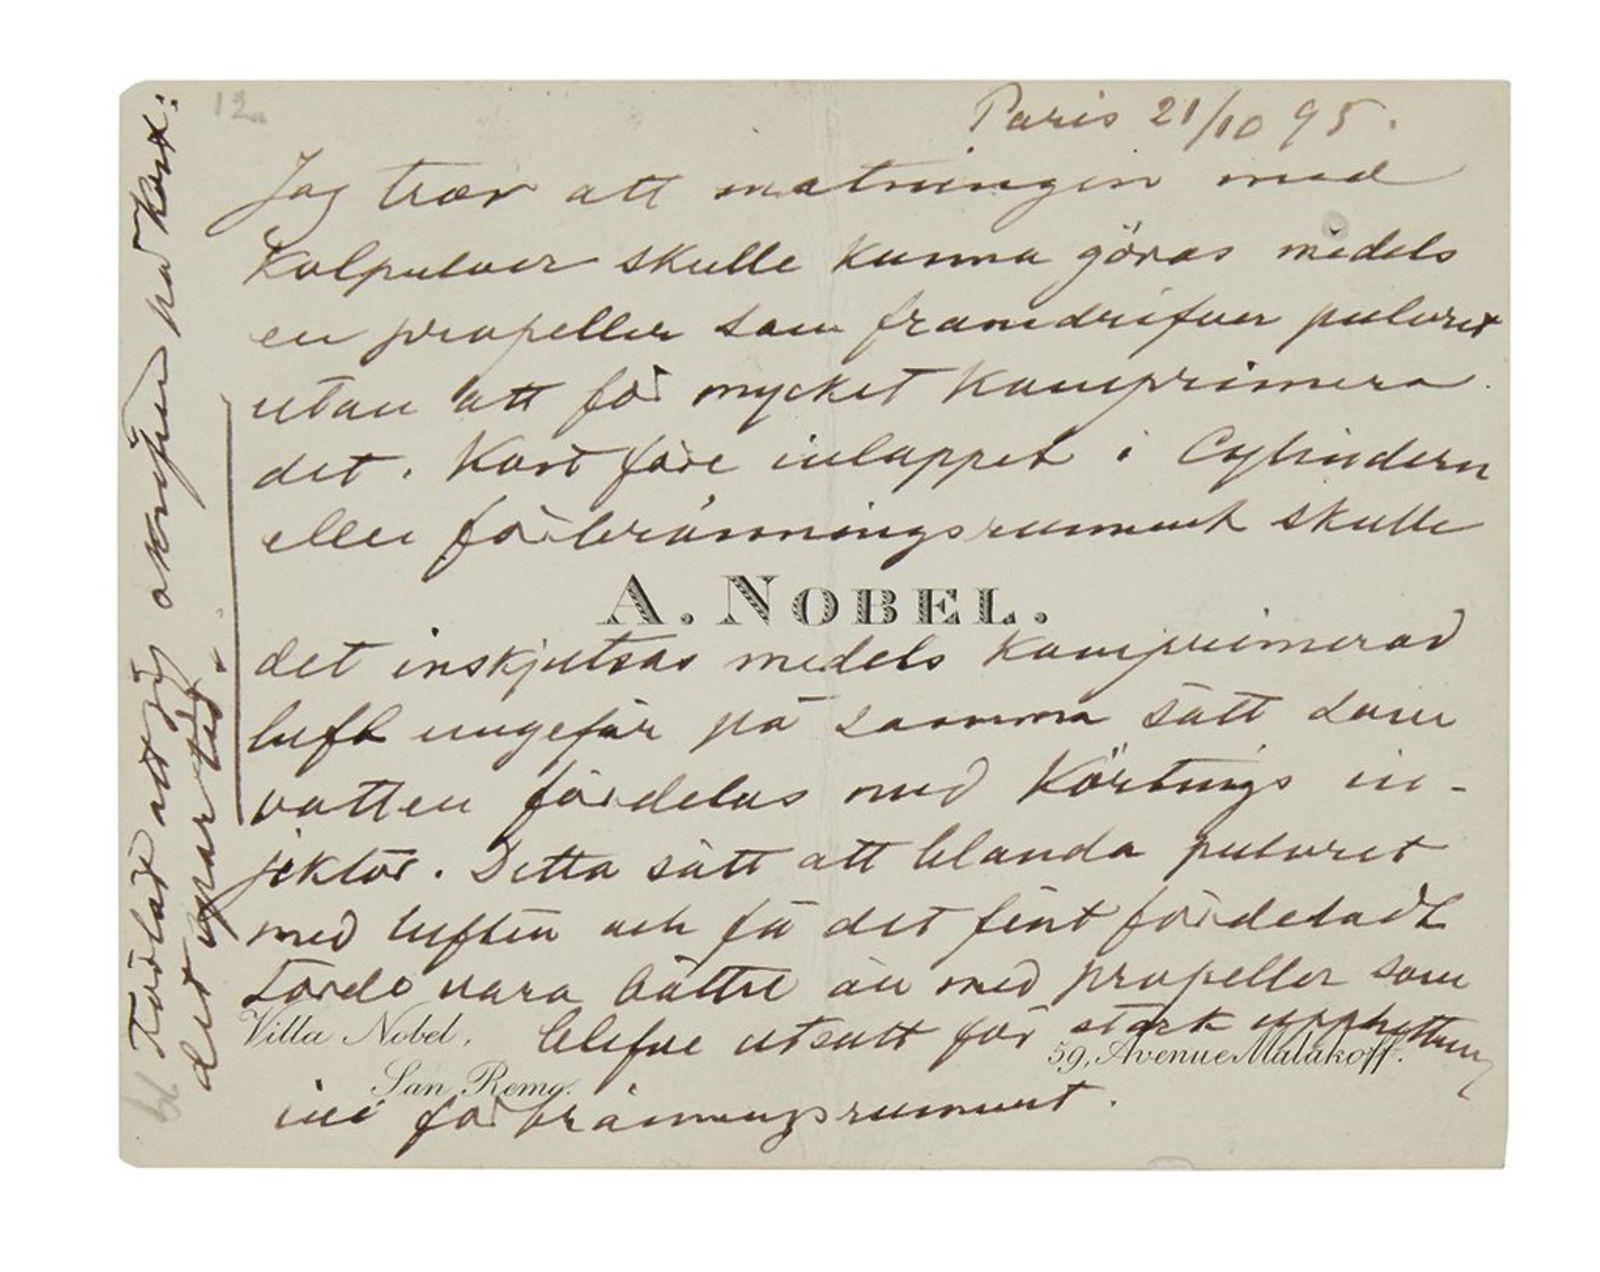 12a
Paris 21/10 95.
Jag tror att matningen med
Kolpulver skulle kunna göras medels
en propeller som framdrifver pulvret
utan att för mycket komprimera
det. Kort före inloppet i Cylindern
eller förbränningsrummet skulle
A. NOBEL.
det inskjutsas medels komprimerad
luft ungefär på samma sätt som
vatten fördelas med Körtings in-
jektor. Detta sätt att blanda pulvret
med luften och få det fint fördeladt
torde vara bättre än med propeller som
Villa Nobel,
San Remo.
59, Avenue Malakoff.
blefve utsatt för stark upphettning
ini förbränningsrummet.
Förlåt att jag skrifver på kort:
det spar tid.